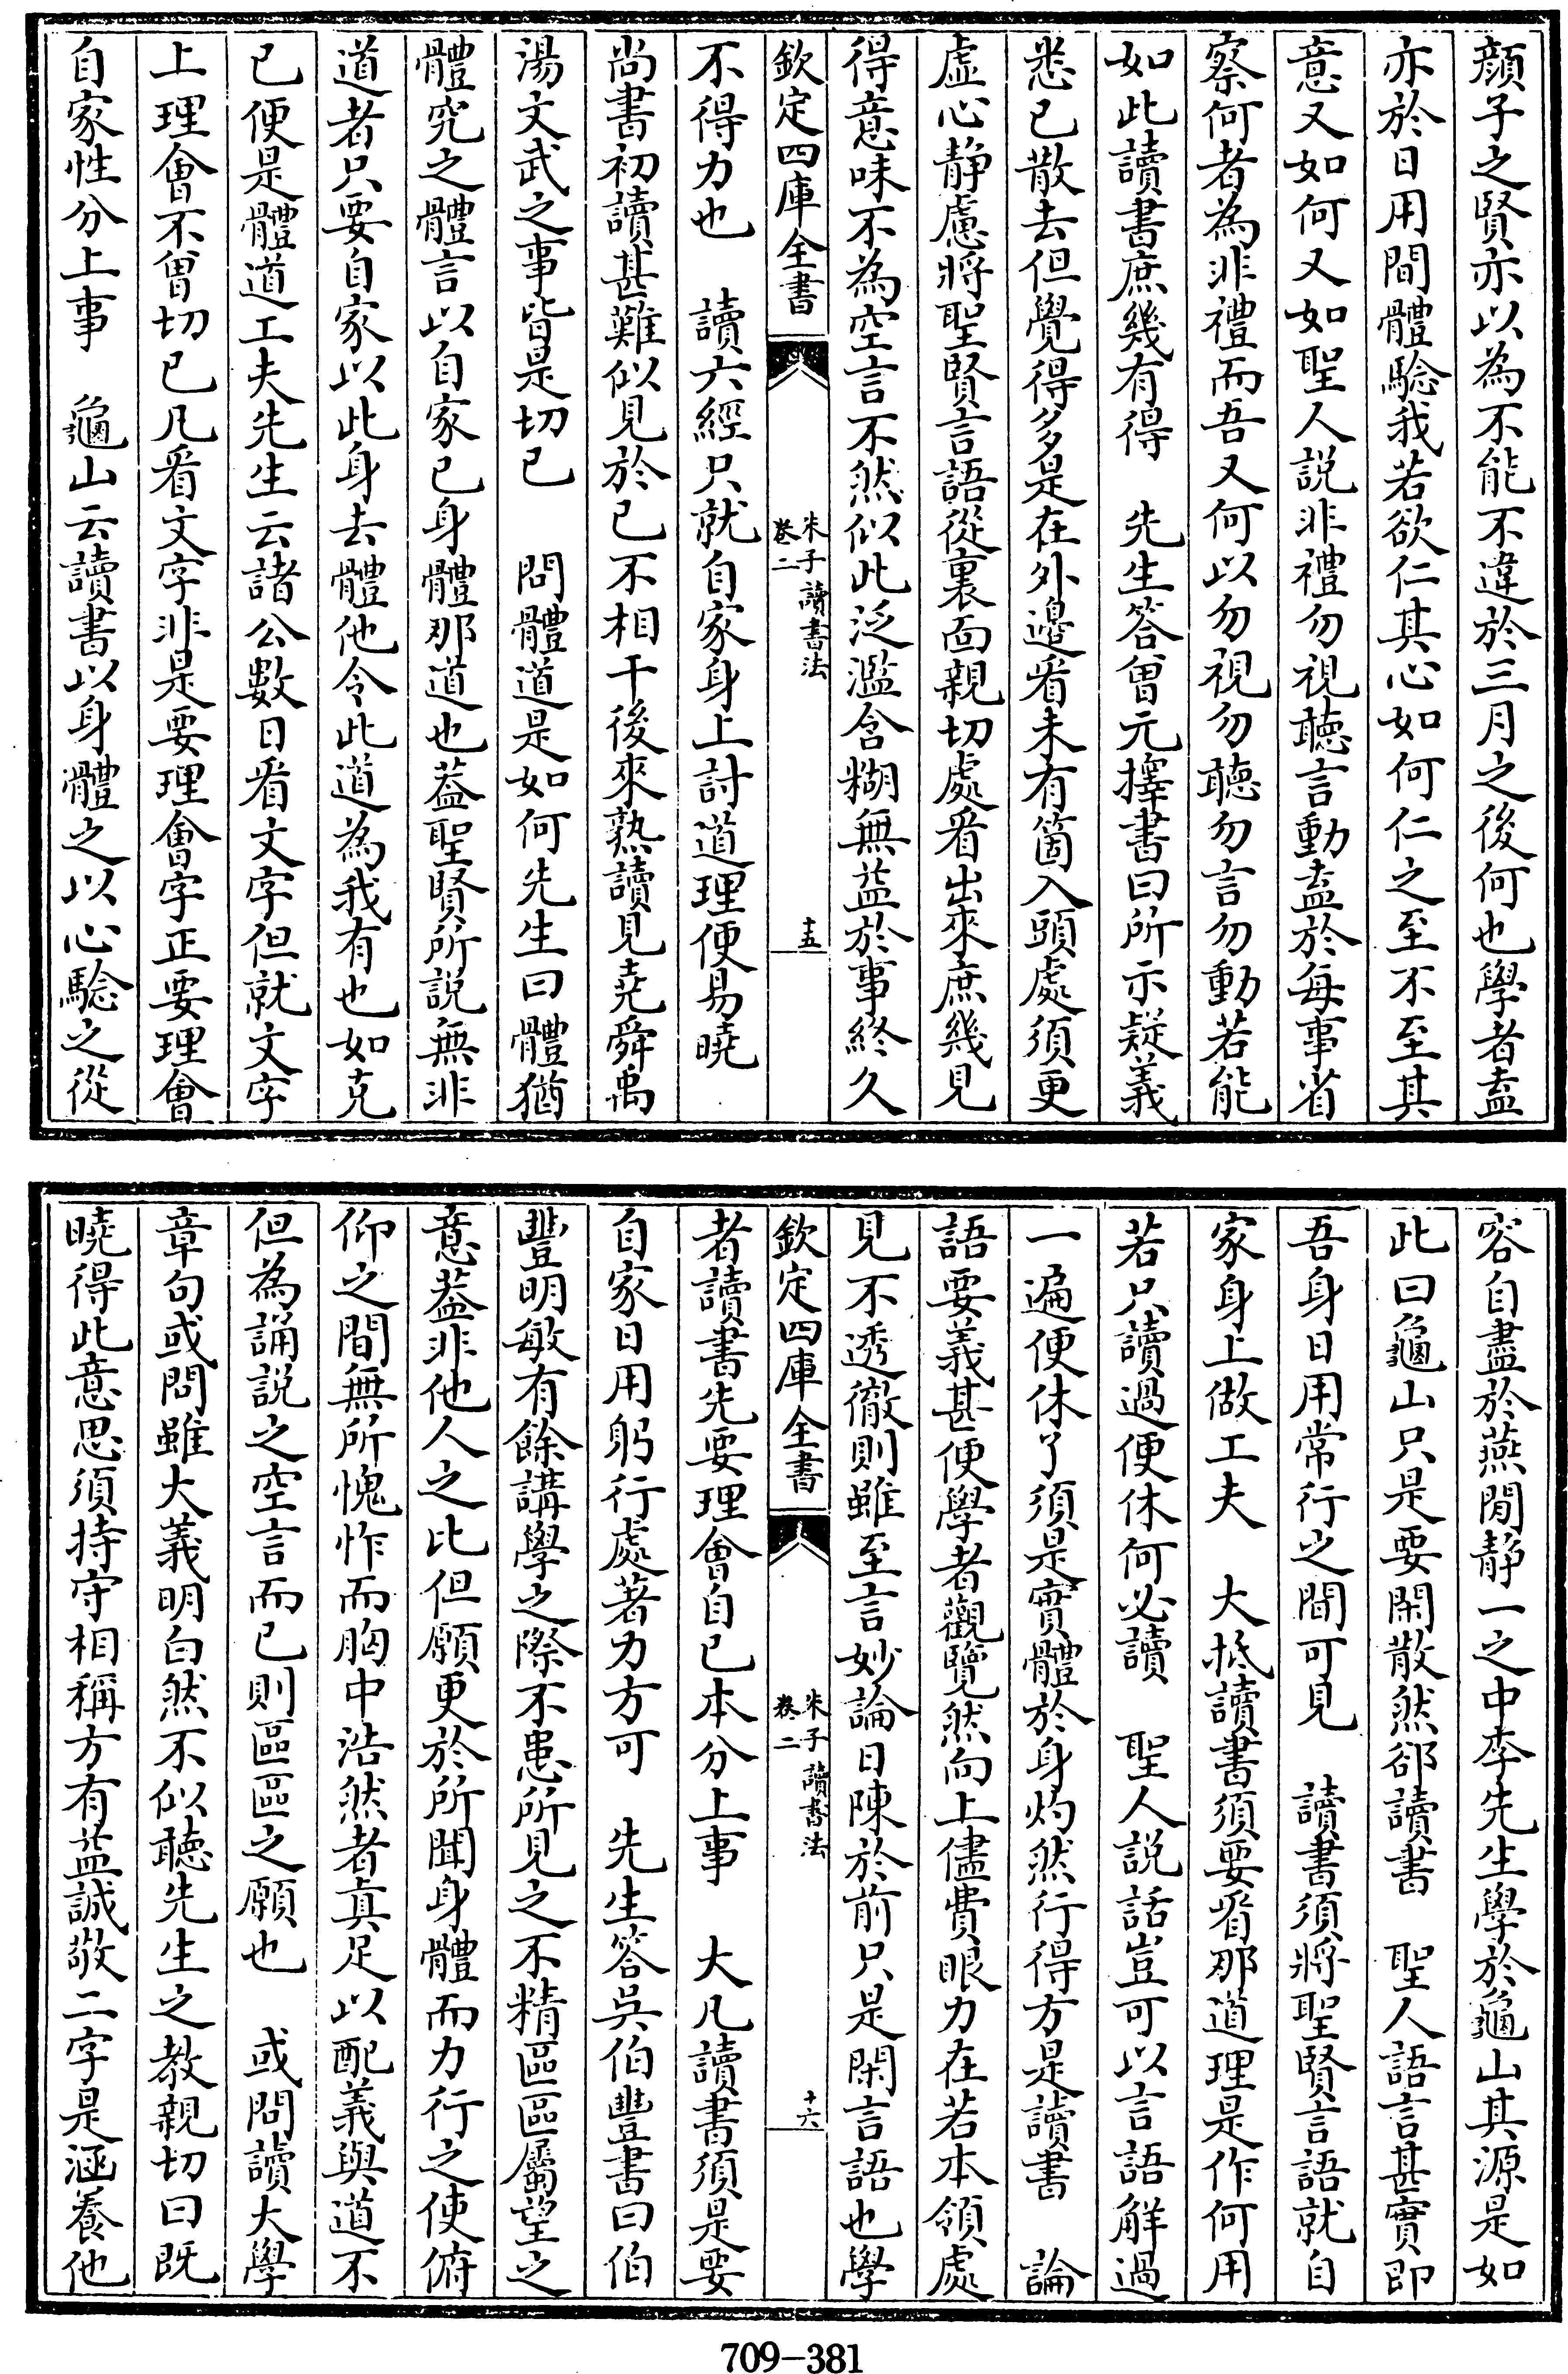 顔子之賢亦以為不能不違於三月之後何也學者盍
亦於日用間體驗我若欲仁其心如何仁之至不至其
意又如何又如聖人説非禮勿視聽言動盍於每事省
察何者為非禮而吾又何以勿視勿聽勿言勿動若能
如此讀書庶幾有得　先生答曾元擇書曰所示疑義
悉已散去但覺得多是在外邊看未有箇入頭處須更
虛心靜慮將聖賢言語從裏面親切處看出來庶幾見
得意味不為空言不然似此泛濫含糊無益於事終久
欽定四庫全書
朱子讀書法
卷二
十五
不得力也　讀六經只就自家身上討道理便易曉
尚書初讀甚難似見於已不相干後來熟讀見堯舜禹
湯文武之事皆是切已　問體道是如何先生曰體猶
體究之體言以自家已身體那道也葢聖賢所説無非
道者只要自家以此身去體他令此道為我有也如克
已便是體道工夫先生云諸公數日看文字但就文字
上理會不曾切已凡看文字非是要理會字正要理會
自家性分上事　龜山云讀書以身體之以心驗之從
容自盡於燕閒静一之中李先生學於龜山其源是如
此曰龜山只是要閑散然郤讀書　聖人語言甚實即
吾身日用常行之間可見　讀書須將聖賢言語就自
家身上做工夫　大抵讀書須要看那道理是作何用
若只讀過便休何必讀　聖人説話豈可以言語解過
一遍便休了須是實體於身灼然行得方是讀書　論
語要義甚便學者觀覽然向上儘費眼力在若本領處
見不透徹則雖至言妙論日陳於前只是閑言語也學
欽定四庫全書
朱子讀書法
卷二
十六
者讀書先要理會自已本分上事　大凡讀書須是要
自家日用躬行處著力方可　先生答吳伯豐書曰伯
豐明敏有餘講學之際不患所見之不精區區屬望之
意葢非他人之比但願更於所聞身體而力行之使俯
仰之間無所愧怍而胸中浩然者真足以配義與道不
但為誦説之空言而已則區區之願也　或問讀大學
章句或問雖大義明白然不似聽先生之教親切曰既
曉得此意思須持守相稱方有益誠敬二字是涵養他
709-381